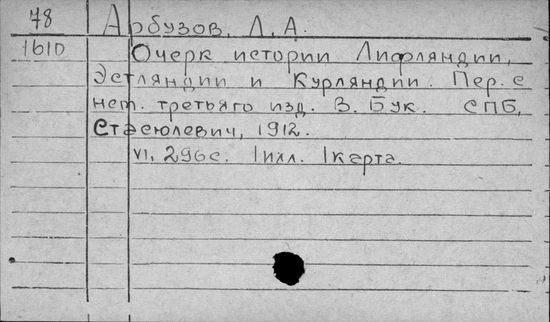 78 Арбузов, Л. А.
1610 Очерк истории Лифляндии,
Эстляндии и Курляндии. Пер. с
нет. третьяго изд. В. Бук. СПБ,
Стасюлевич, 1912.
VI, 296 с. 1 илл. 1 карта.